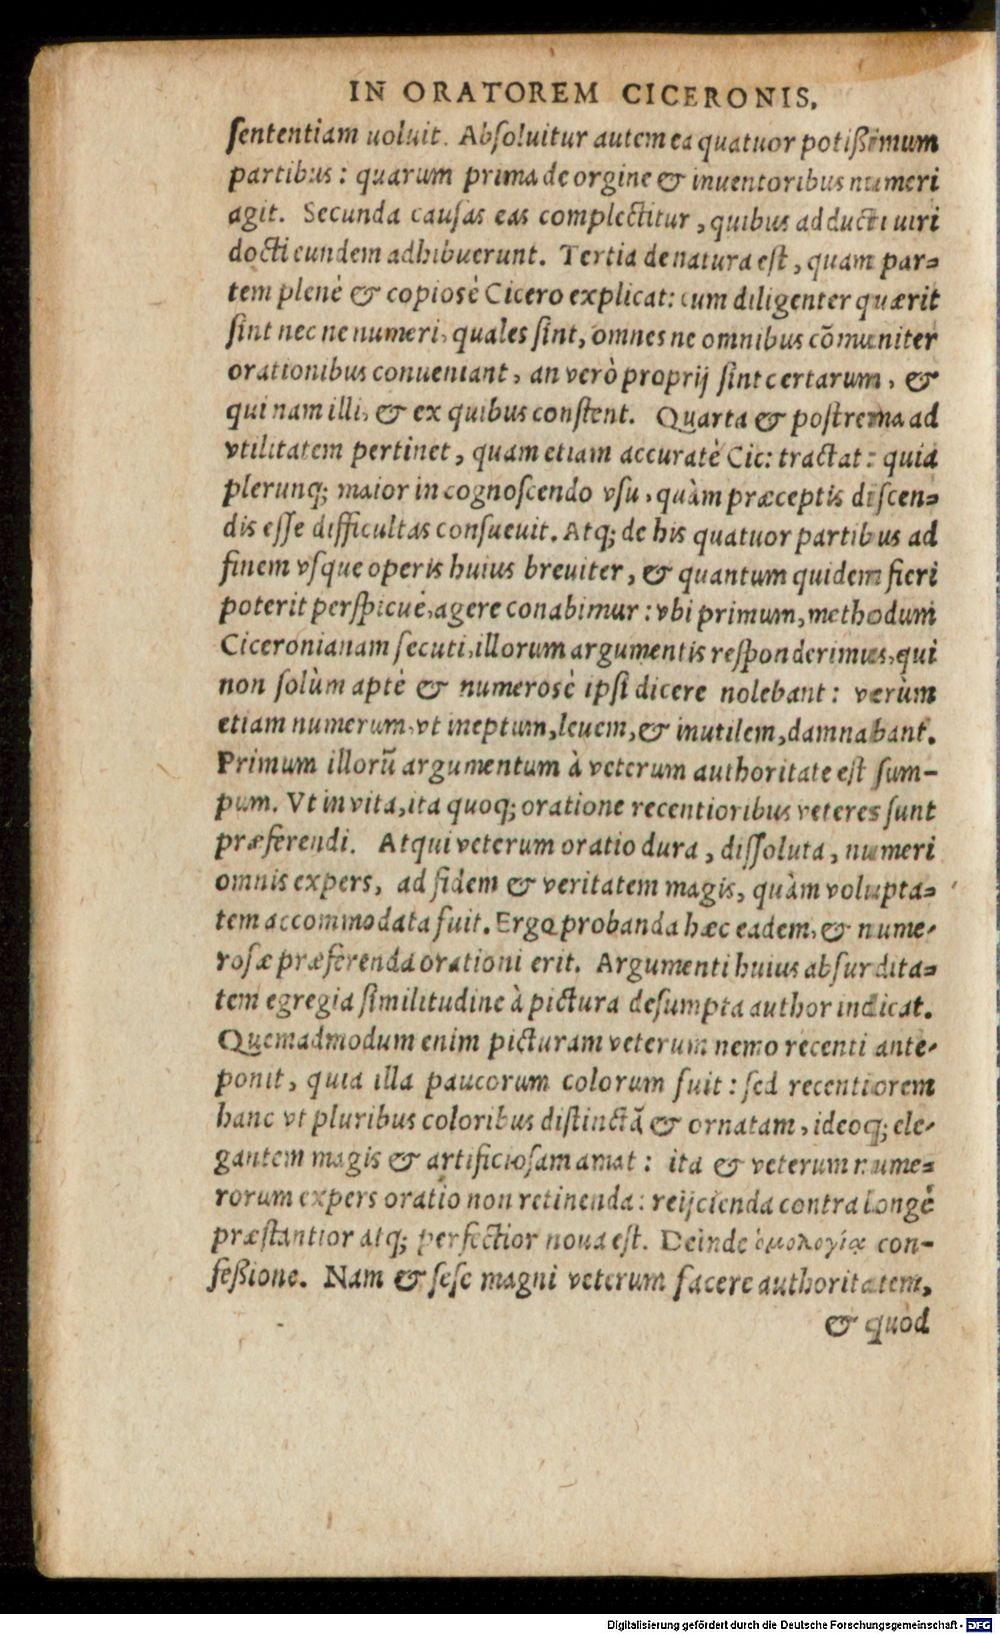 IN ORATOREM CICERONIS.
ſententiam uoluit. Abſoluitur autem ea quatuor potißimum
partibus: quarum prima de orgine & inuentoribus numeri
agit. Secunda cauſas eas complectitur, quibus adducti uiri
docti eundem adhibuerunt. Tertia de natura eſt, quam par=
tem plenè & copiosè Cicero explicat: cum diligenter quærit
ſint nec ne numeri, quales ſint, omnes ne omnibus cõmuniter
orationibus conueniant, an verò proprij ſint certarum, &
qui nam illi, & ex quibus conſtent. Quarta & poſtrema ad
vtilitatem pertinet, quam etiam accuratè Cic: tractat: quia
plerunq; maior in cognoſcendo vſu, quàm præceptis diſcen=
dis eſſe difficultas conſueuit. Atq; de his quatuor partibus ad
finem vſque operis huius breuiter, & quantum quidem fieri
poterit perſpicuè, agere conabimur: vbi primum, methodum
Ciceronianam ſecuti, illorum argumentis reſponderimus, qui
non ſolùm aptè & numerosè ipſi dicere nolebant: verùm
etiam numerum, vt ineptum, leuem, & inutilem, damnabant.
Primum illorũ argumentum à veterum authoritate eſt ſum-
pum. Vt in vita, ita quoq; oratione recentioribus veteres ſunt
præferendi. Atqui veterum oratio dura, diſſoluta, numeri
omnis expers, ad fidem & veritatem magis, quàm volupta=
tem accommodata fuit. Ergo probanda hæc eadem, & nume-
roſæ præferenda orationi erit. Argumenti huius abſurdita=
tem egregia ſimilitudine à pictura deſumpta author indicat.
Quemadmodum enim picturam veterum nemo recenti ante-
ponit, quia illa paucorum colorum fuit: ſed recentiorem
hanc vt pluribus coloribus diſtinctã & ornatam, ideoq; ele-
gantem magis & artificioſam amat: ita & veterum nume=
rorum expers oratio non retinenda: reijcienda contra longè
præſtantior atq; perfectior noua eſt. Deinde ὁμολογίᾳ con-
feßione. Nam & ſeſe magni veterum facere authoritatem,
& quòd
Digitalisierung gefördert durch die Deutsche Forschungsgemeinschaft - DFG